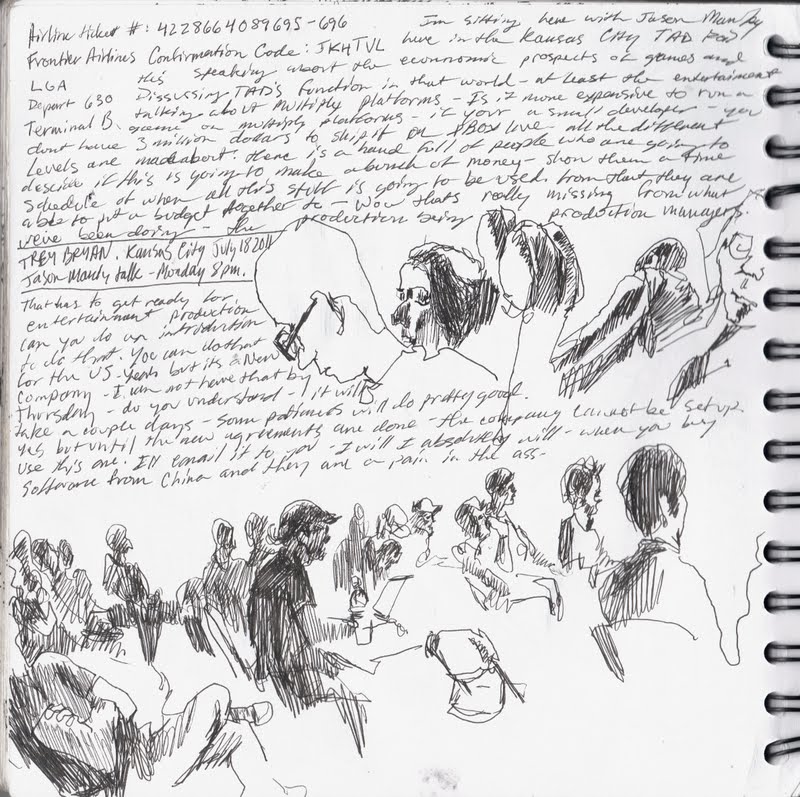 Airline ticket #: 4228664089695-696
Frontier Airlines Confirmation Code: JKHTVL
I'm sitting here with Jason Mandy
here in the Kansas City TAD
LGA this speaking about the economic prospects of games and
Depart 630 Discussing TAD's function in that world - at least the entertainment
Terminal B. talking about Multiply platforms - Is it more expensive to run a
game on multiply platforms - if your a small developer - you
dont have 3 million dollars to ship it on XBOX Live all the different
Levels are madeabout. there is a hand full of people who are going to
decide if this is going to make a bunch of money - show them a time
schedule of when all this stuff is going to be used. from that they are
able to put a budget together to - Wow thats really missing from what
weve been doing - the production being production managers.
TREY BRYAN. Kansas City July 18 2011
Jason Mandy talk - Monday 8pm.
That has to get ready for
entertainment production
can you do an introduction
to do that. You can do that
for the US. Yeah but its a New
Company - I can not have that by
Thursday - do you understand - it will
take a couple days - Some patiences will do pretty good.
Yes but until the new agreements are done - the company cannot be setup.
Use this one. I'll email it to you - I will I absolutely will - when you buy
Software from China and they are a pain in the ass-